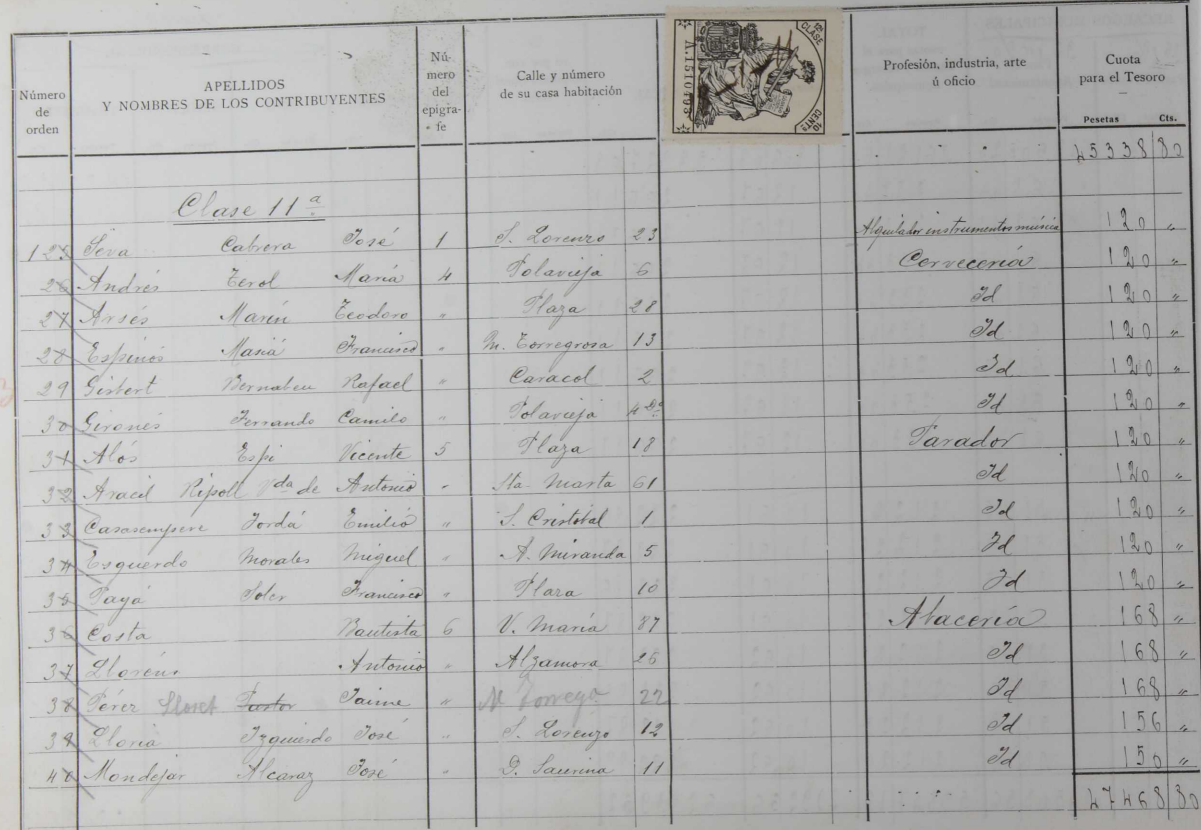 Número de orden | APELLIDOS Y NOMBRES DE LOS CONTRIBUYENTES | Nú- mero del epígra- fe | Calle y número de su casa habitación | Profesión, industria, arte ú oficio | Cuota para el Tesoro
Pesetas Cts.
12ª CLASE
10 CENTS
45338 80
Clase 11ª
125 Seva Cabrera José 1 S. Lorenzo 23 Alquilador instrumentos música 120 "
26 Andrés Terol María 4 Polavieja 6 Cervecería 120 "
27 Arsés Marín Teodoro " Plaza 28 Id 120 "
28 Espinós Masiá Francisco " M. Torregrosa 13 Id 120 "
29 Gisbert Bernabeu Rafael " Caracol 2 Id 120 "
30 Gironés Ferrando Camilo " Polavieja 4 Id 120 "
31 Alós Espí Vicente 5 Plaza 18 Parador 120 "
32 Aracil Ripoll Vda de Antonio " Sta. Marta 61 Id 120 "
33 Casasempere Jordá Emilio " S. Cristobal 1 Id 120 "
34 Esquerdo Morales Miguel " A. Miranda 5 Id 120 "
35 Payá Soler Francisco " Plaza 10 Id 120 "
36 Costa Bautista 6 V. María 87 Abacería 168 "
37 Lloréns Antonio " Alzamora 26 Id 168 "
38 Pérez Lloret Pastor Jaime " M Torrega 22 Id 168 "
39 Lloria Izquierdo José " S. Lorenzo 12 Id 156 "
40 Mondejar Alcaraz José " 11 Id 150 "
47468 80